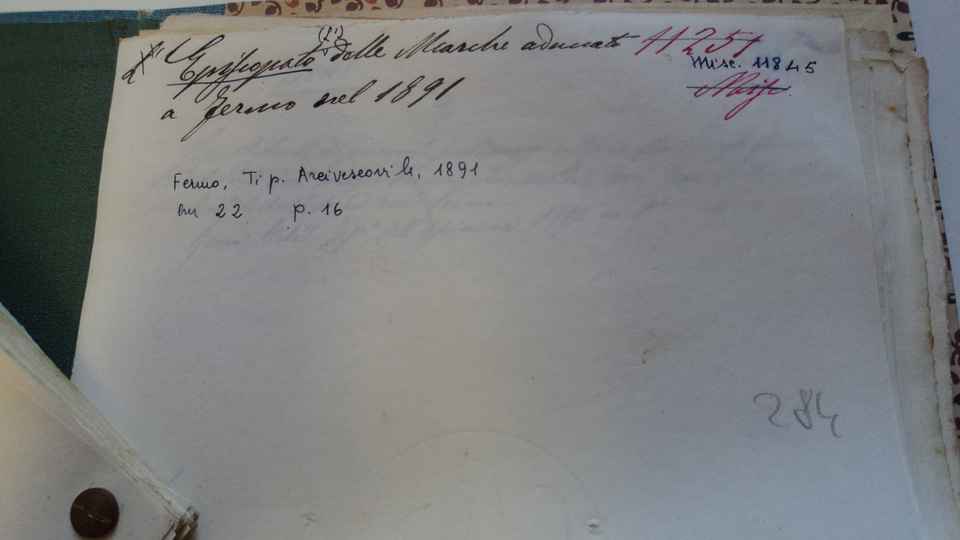 (L') Episcopato delle Marche adunato 11251
Misc. 11845
Misc.
a Fermo nel 1891
Fermo, Tip. Arcivescovile, 1891
cm 22 p. 16
284